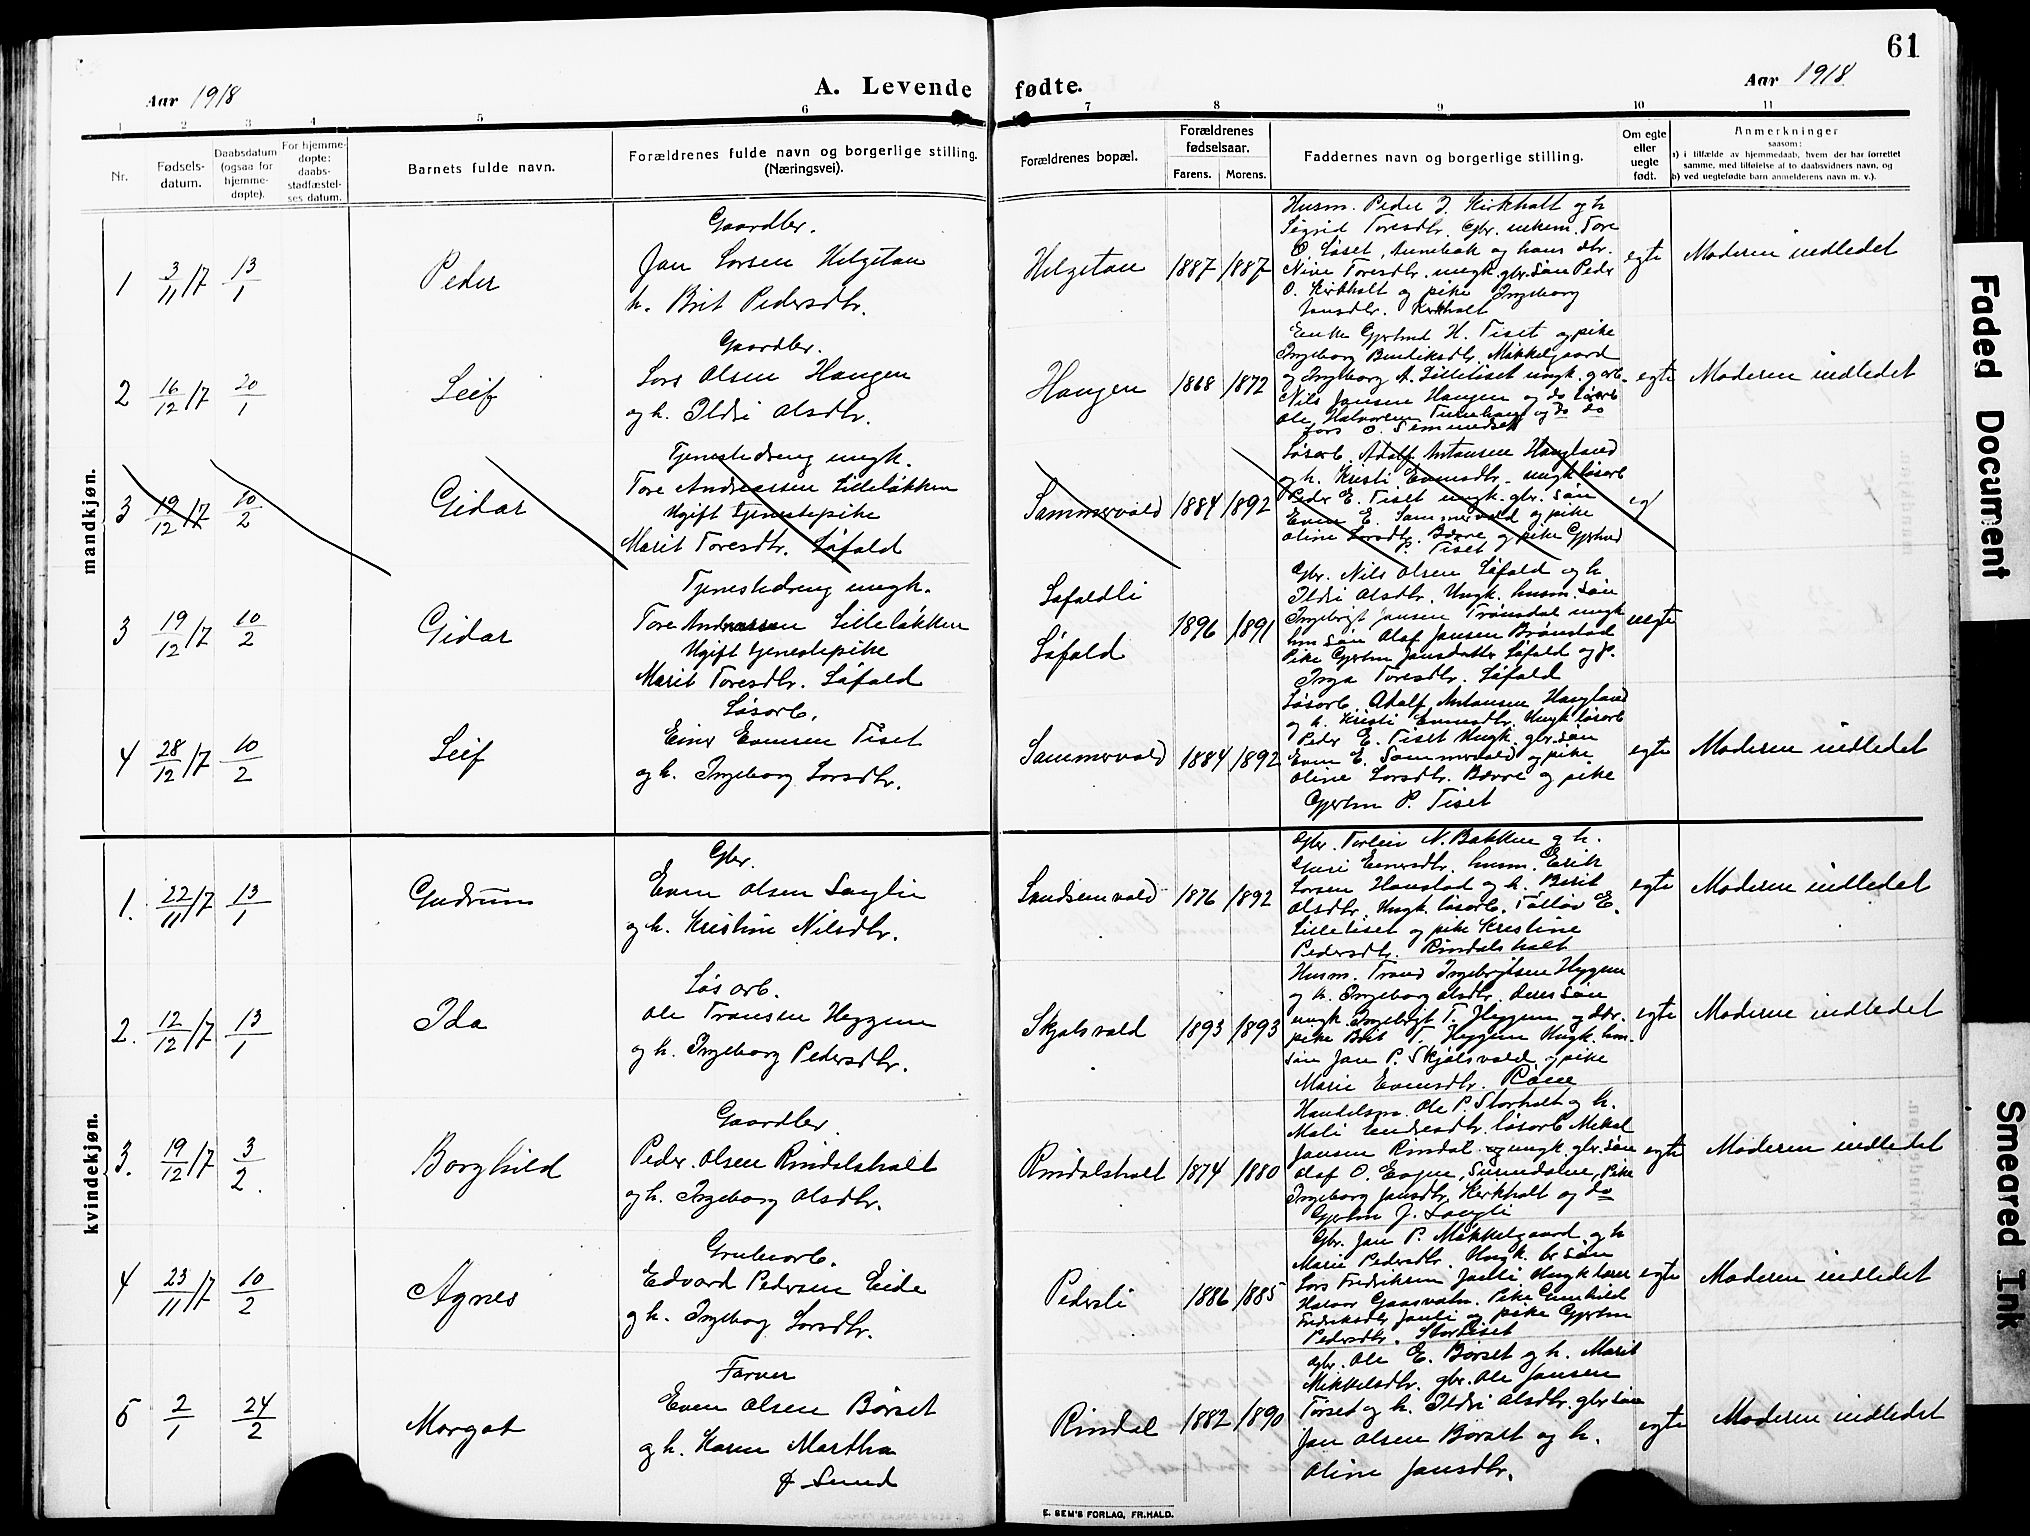 61
Aar 1918
A. Levende fødte.
Aar 1918
1 2 3 4 5 6 7 8 9 10 11
Nr.
Fødsels-
datum.
Daabsdatum
(ogsaa for
hjemme-
døpte).
For hjemme-
døpte:
daabs-
stadfæstel-
ses datum.
Barnets fulde navn.
Forældrenes fulde navn og borgerlige stilling.
(Næringsvei).
Forældrenes bopæl.
Forældrenes
fødselsaar.
Farens. Morens.
Faddernes navn og borgerlige stilling.
Om egte
eller
uegte
født.
Anmerkninger
saasom:
a) i tilfælde av hjemmedaab, hvem der har forrettet
samme, med tilføielse af to daabsvidners navn, og
b) ved uegtefødte barn anmelderens navn m. v.).
mandkjøn.
1 3/11 17 13/1 Peder
Gaardbr.
Jan Larsen Helgetun
h. Brit Pedersdtr.
Helgetun 1887 1887
Husm. Peder J. Kirkholt og h
Sigrid Toresdtr. Gbr. enkem. Tore
O. Løset, Aunebak og hans dtr.
Nine Toresdtr. ungk. gbr. søn Peder
O. Kirkholt og pike Ingeborg
Jansdtr. Kirkholt
egte Moderen indledet
2 16/12 17 20/1 Leif
Gaardbr.
Lars Olsen Haugen
og h. Ildri Olsdtr.
Haugen 1868 1872
Enke Gjertrud H. Tiset og pike
Ingeborg Bendiksdtr. Mikkelgaard
og Ingeborg A. Lilletiset ungk. garb.
Nils Jansen Haugen og do løsarb
Ole Halvorsen Tunehaug og do do
Lars O.
egte Moderen indledet
3 19/12 17 10/2 Gidar
Tjenestedreng ungk.
Tore Andreassen Lilleløkken
Ugift tjenestepike
Marit Toresdtr. Løfald
Sammervold 1884 1892
Løsarb. Adolf Antonsen Haugland
og h. Kristi Evensdtr. ungk. løsarb
Peder E. Tiset ungk. gbr. søn
Even E. Sammervold og pike
Oline Larsdtr. Bævre og pike Gjertrud
P. Tiset
eg
3 19/12 17 10/2 Gidar
Tjenestedreng ungk.
Tore Andreassen Lilleløkken
Ugift tjenestepike
Marit Toresdtr. Løfald
Løfaldli
Løfald
1896 1891
Gbr. Nils Olsen Løfald og h
Ildri Olsdtr. Ungk. husm. søn
Ingebrigt Jansen Trønsdal ungk
hm søn Olaf Jansen Brønstad
Pike Gjertru Jansdatter Løfald og p.
Inga Toresdtr. Løfald
uegte
4 28/12 17 10/2 Leif
Løsarb.
Einar Evensen Tiset
og h. Ingeborg Larsdtr.
Sammervold 1884 1892
Løsarb. Adolf Antonsen Haugland
og h. Kristi Evensdtr. Ungk løsarb
Peder E. Tiset Ungk. gbr. søn
Even E. Sammervold og pike
Oline Larsdtr. Bævre og pike
Gjertru P. Tiset
egte Moderen indledet
kvindekjøn.
1. 22/11 17 13/1 Gudrun
Gbr.
Even Olsen Langli
og h. Kristine Nilsdtr.
Landsemvold 1876 1892
Gbr. Torleiv N. Bakken og h.
Guri Einersdtr. husm. Erik
Larsen Hanstad og h. Berit
Olsdtr. Ungk. løsarb. Tollov E.
Lilletiset og pike Kristine
Pedersdtr. Rindalsholt
egte Moderen indledet
2. 12/12 17 13/1 Ida
Løsarb.
Ole Tronsen Heggem
og h. Ingeborg Pedersdtr.
Skjølsvold 1893 1893
Husm. Trond Ingebrigtsen Heggem
og h. Ingeborg Olsdtr. deres søn
ungk. Ingebrigt T. Heggem og dtr.
pike Brit T. Heggem Ungk. hm.
søn Jan P. Skjølsvold og pike
Marie Evensdtr. Røen
egte Moderen indledet
3. 19/12 17 3/2. Borghild
Gaardbr.
Peder Olsen Rindalsholt
og h. Ingeborg Olsdtr.
Rindalsholt 1874 1880
Handelsm. Ole P. Storholt og h.
Mali Endresdtr. løsarb Mikal
Jansen Rindal og ungk. gbr. søn
Olaf O. Evjen, Surendalen, Pike
Ingeborg Jansdtr. Kirkholt og do
Gjertru J. Langli
egte Moderen indledet
4 23/11 17 10/2 Agnes
Grubearb.
Edvard Pedersen Eide
og h. Ingeborg Larsdtr.
Pedersli 1886 1885
Gbr. Jan P. Mikkelgaard og h
Marie Pedersdtr. Ungk. br søn
Lars Fredriksen Jønli, Ungk lærer
Halvor Gaasvatn. Pike Gunhild
Fredriksdtr. Jønli og pike Gjertru
Pedersdtr. Stortiset
egte Moderen indledet
5 2/1 24/2 Margot
Farver
Even Olsen Børset
og h. Karen Martha
f Sund
Rindal 1882 1890
Gbr. Ole E. Børset og h. Marit
Mikkelsdtr. gbr. Ole Jansen
Tørset og h. Ildri Olsdtr. gbr. søn
Jan Olsen Børset og h.
Oline Jansdtr.
egte Moderen indledet
E. SEM'S FORLAG, FR.HALD.
Faded Document
Smeared Ink